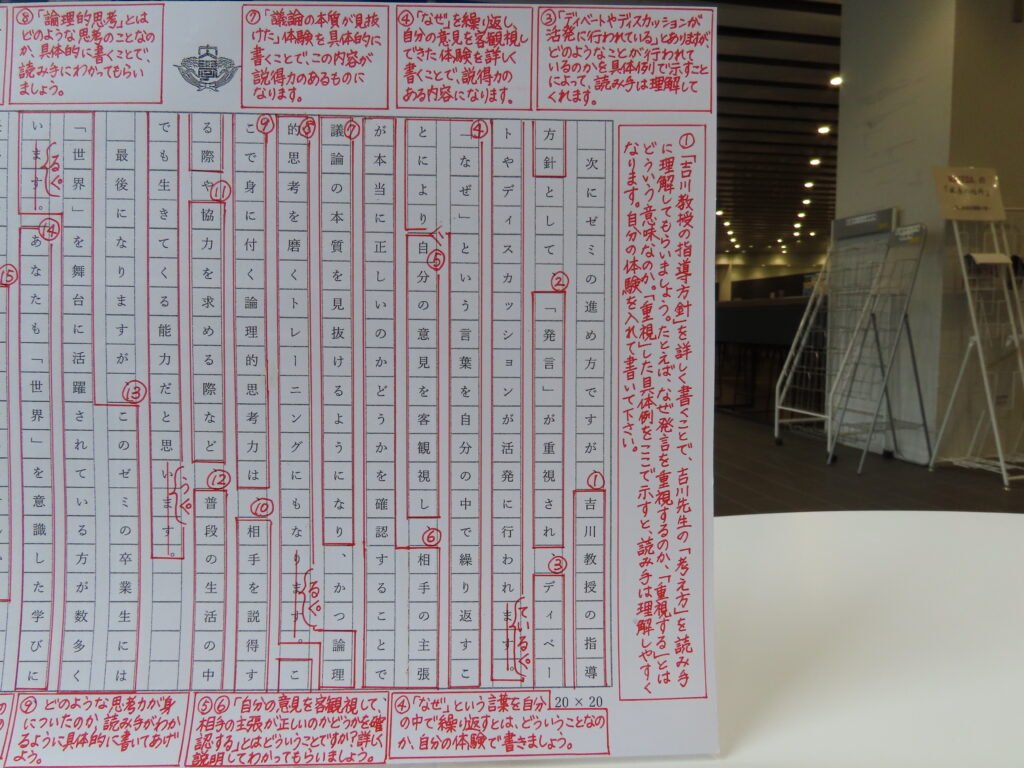 ③「ディベートやディスカッションが
活発に行われている」とありますが、
どのようなことが行われて
いるのかを具体例で示すこと
によって、読み手は理解して
くれます。
④「なぜ」を繰り返し、
自分の意見を客観視し
てきた体験を詳しく
書くことで、説得力の
ある内容になります。
⑦「議論の本質が見抜
けた」体験を具体的に
書くことで、この内容が
説得力のあるものに
なります。
⑧「論理的思考」とは
どのような思考のことなの
か、具体的に書くことで、
読み手にわかってもらい
ましょう。
①「吉川教授の指導方針」を詳しく書くことで、吉川先生の「考え方」を読み手
に理解してもらいましょう。たとえば、なぜ発言を重視するのか、「重視する」とは
どういう意味なのか、「重視」した具体例をここで示すと、読み手は理解しやすく
なります。自分の体験を入れて書いて下さい。
次にゼミの進め方ですが①吉川教授の指導
方針として②「発言」が重視され、③ディベー
トやディスカッションが活発に行われます。ているぐ。
④「なぜ」という言葉を自分の中で繰り返すこ
とにより⑤自分の意見を客観視し⑥相手の主張
が本当に正しいのかどうかを確認することで
⑦議論の本質を見抜けるようになり、かつ論理
⑧的思考を磨くトレーニングにもなります。るぐ。こ
⑨こで身に付く論理的思考力は⑩相手を説得す
る際や⑪協力を求める際など⑫普段の生活の中
でも生きてくる能力だと思います。うぐ。
最後になりますが⑬このゼミの卒業生には
「世界」を舞台に活躍されている方が数多く
います。るぐ。⑭あなたも「世界」を意識した学びに
⑮
20 × 20
④「なぜ」という言葉を自分
の中で繰り返すとは、どういうことなの
か、自分の体験で書きましょう。
⑤⑥「自分の意見を客観視して、
相手の主張が正しいのかどうかを確
認する」とはどういうことですか?詳しく
説明してわかってもらいましょう。
⑨ どのような思考力が身
についたのか、読み手がわか
るように具体的に書いてあげ
よう。